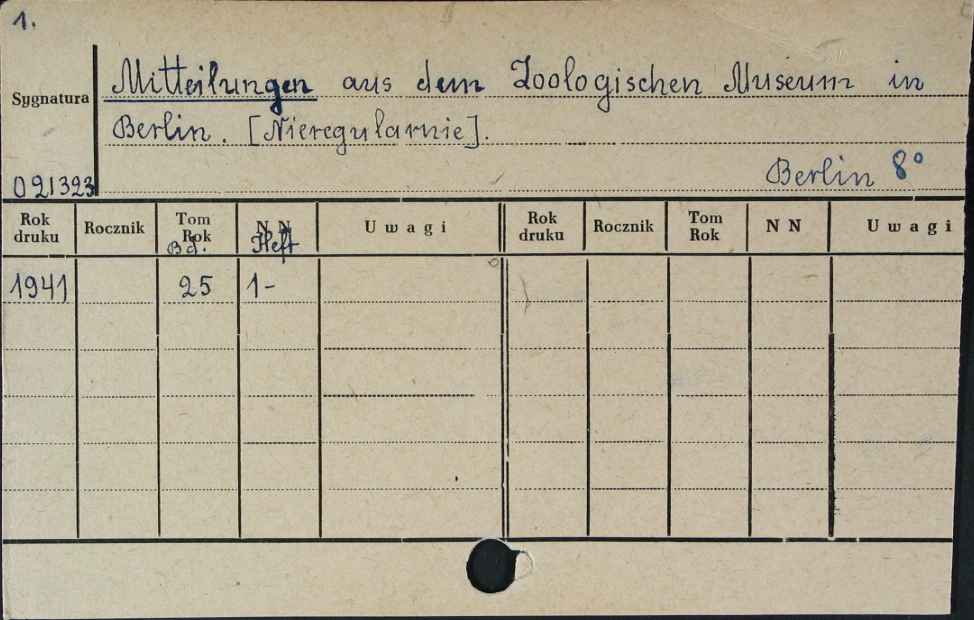 1.
Sygnatura
Mitteilungen aus dem Zoologischen Museum in
Berlin. [Nieregularnie].
Berlin 8°
021323
Rok druku Rocznik Tom Rok Bd. N N Heft Uwagi Rok druku Rocznik Tom Rok N N Uwagi
1941 25 1-